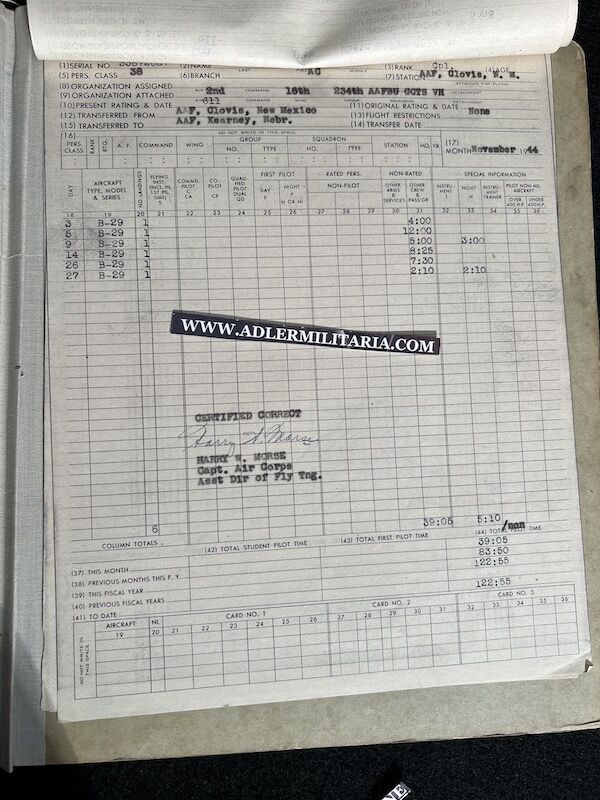 (1) SERIAL NO. (2) NAME AC (3) RANK Cpl. (4) AGE
(5) PERS. CLASS 38 (6) BRANCH (7) STATION AAF, Clovis, N. M.
(8) ORGANIZATION ASSIGNED 2nd 16th 234th AAFBU CCTS VH
(9) ORGANIZATION ATTACHED
(10) PRESENT RATING & DATE 611 (11) ORIGINAL RATING & DATE None
(12) TRANSFERRED FROM AAF, Clovis, New Mexico (13) FLIGHT RESTRICTIONS
(15) TRANSFERRED TO AAF, Kearney, Nebr. (14) TRANSFER DATE
DO NOT WRITE IN THIS SPACE
(16) GROUP SQUADRON (17)
PERS CLASS RANK RTG. A. F. COMMAND WING NO. TYPE NO. TYPE STATION MO. YR. MONTH November 1944
FIRST PILOT RATED PERS. NON-RATED SPECIAL INFORMATION
DAY AIRCRAFT TYPE, MODEL & SERIES NO. LANDINGS FLYING INST. (INCL. IN 1ST PIL. TIME) S COMMD. PILOT C CA CO-PILOT CP QUALIFIED PILOT DUAL QD DAY P NIGHT P N OR NI NON-PILOT OTHER ARMS & SERVICES OTHER CREW & PASS'GR INSTRUMENT I NIGHT N INSTRUMENT TRAINER PILOT NON-MIL. AIRCRAFT OVER 400 H.P. UNDER 400 H.P.
18 19 20 21 22 23 24 25 26 27 28 29 30 31 32 33 34 35 36
3 B-29 1 4:00
5 B-29 1 12:00
9 B-29 1 5:00 3:00
14 B-29 1 8:25
26 B-29 1 7:30
27 B-29 1 2:10 2:10
WWW.ADLERMILITARIA.COM
CERTIFIED CORRECT
Harry W. Morse
HARRY W. MORSE
Capt. Air Corps
Asst Dir of Fly Tng.
6 39:05 5:10
COLUMN TOTALS
(42) TOTAL STUDENT PILOT TIME (43) TOTAL FIRST PILOT TIME (44) TOTAL PILOT TIME /non
(37) THIS MONTH 39:05
(38) PREVIOUS MONTHS THIS F. Y. 83:50
(39) THIS FISCAL YEAR 122:55
(40) PREVIOUS FISCAL YEARS
(41) TO DATE 122:55
AIRCRAFT NL CARD NO. 1 CARD NO. 2 CARD NO. 3
19 20 21 22 23 24 25 26 27 28 29 30 31 32 33 34 35 36
DO NOT WRITE IN THIS SPACE